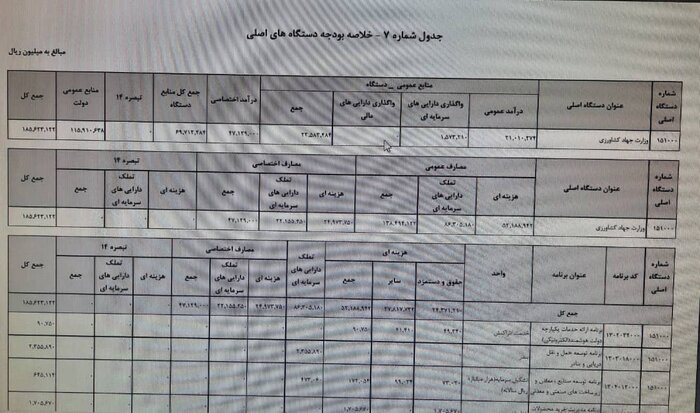 جدول شماره ۷ - خلاصه بودجه دستگاه های اصلی
مبالغ به میلیون ریال
شماره دستگاه اصلی
عنوان دستگاه اصلی
منابع عمومی _ دستگاه
درآمد عمومی
واگذاری دارایی های سرمایه ای
واگذاری دارایی های مالی
جمع
درآمد اختصاصی
جمع کل منابع دستگاه
تبصره ۱۴
منابع عمومی دولت
جمع کل
۱۵۱۰۰۰ وزارت جهاد کشاورزی ۲۱،۰۱۰،۲۷۴ ۱،۵۷۳،۲۱۰ ۲۲،۵۸۳،۴۸۴ ۴۷،۱۲۹،۰۰۰ ۶۹،۷۱۲،۴۸۴ ۰ ۱۱۵،۹۱۰،۶۳۸ ۱۸۵،۶۲۳،۱۲۲
شماره دستگاه اصلی
عنوان دستگاه اصلی
مصارف عمومی
هزینه ای
تملک دارایی های سرمایه ای
جمع
مصارف اختصاصی
هزینه ای
تملک دارایی های سرمایه ای
جمع
تبصره ۱۴
هزینه ای
تملک دارایی های سرمایه ای
جمع
جمع کل
۱۵۱۰۰۰ وزارت جهاد کشاورزی ۵۲،۱۸۸،۹۴۲ ۸۶،۳۰۵،۱۸۰ ۱۳۸،۴۹۴،۱۲۲ ۲۴،۹۷۳،۷۵۰ ۲۲،۱۵۵،۲۵۰ ۴۷،۱۲۹،۰۰۰ ۰ ۰ ۰ ۱۸۵،۶۲۳،۱۲۲
شماره دستگاه اصلی
کد برنامه
عنوان برنامه
واحد
هزینه ای
حقوق و دستمزد
سایر
جمع
تملک دارایی های سرمایه ای
مصارف اختصاصی
هزینه ای
تملک دارایی های سرمایه ای
جمع
تبصره ۱۴
هزینه ای
تملک دارایی های سرمایه ای
جمع
جمع کل
جمع کل
۵۲،۱۸۸،۹۴۲ ۸۶،۳۰۵،۱۸۰ ۲۴،۹۷۳،۷۵۰ ۲۲،۱۵۵،۲۵۰ ۴۷،۱۲۹،۰۰۰ ۰ ۰ ۰ ۱۸۵،۶۲۳،۱۲۲
۱۵۱۰۰۰ برنامه ارائه خدمات یکپارچه دولت هوشمند(الکترونیکی) ۴۹،۳۴۰ ۴۱،۴۱۰ ۹۰،۷۵۰ ۹۰،۷۵۰
۱۵۱۰۰۰ برنامه توسعه حمل و نقل دریایی و بنادر ۲،۳۵۵،۸۹۰ ۲،۳۵۵،۸۹۰
۱۵۱۰۰۰ برنامه توسعه صنایع ، معادن و زیرساخت های صنعتی و معدنی
۱،۷۰۵،۶۷۰